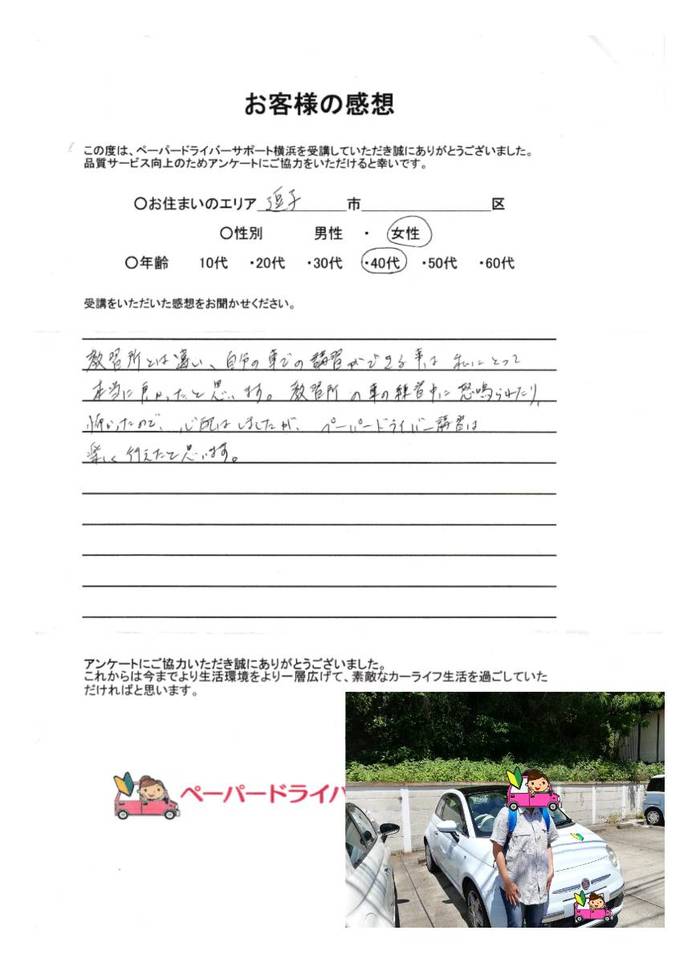 お客様の感想
この度は、ペーパードライバーサポート横浜を受講していただき誠にありがとうございました。
品質サービス向上のためアンケートにご協力をいただけると幸いです。
〇お住まいのエリア 逗子 市 区
〇性別 男性 ・ 女性
〇年齢 10代 ・20代 ・30代 ・40代 ・50代 ・60代
受講をいただいた感想をお聞かせください。
教習所とは違い、自分の車での講習ができる事は 私にとって
本当に良かったと思います。教習所の車の練習中に怒鳴られたり、
怖かったので、心配はしましたが、ペーパードライバー講習は
楽しく行えたと思います。
アンケートにご協力いただき誠にありがとうございました。
これからは今までより生活環境をより一層広げて、素敵なカーライフ生活を過ごしていた
だければと思います。
ペーパードライバ